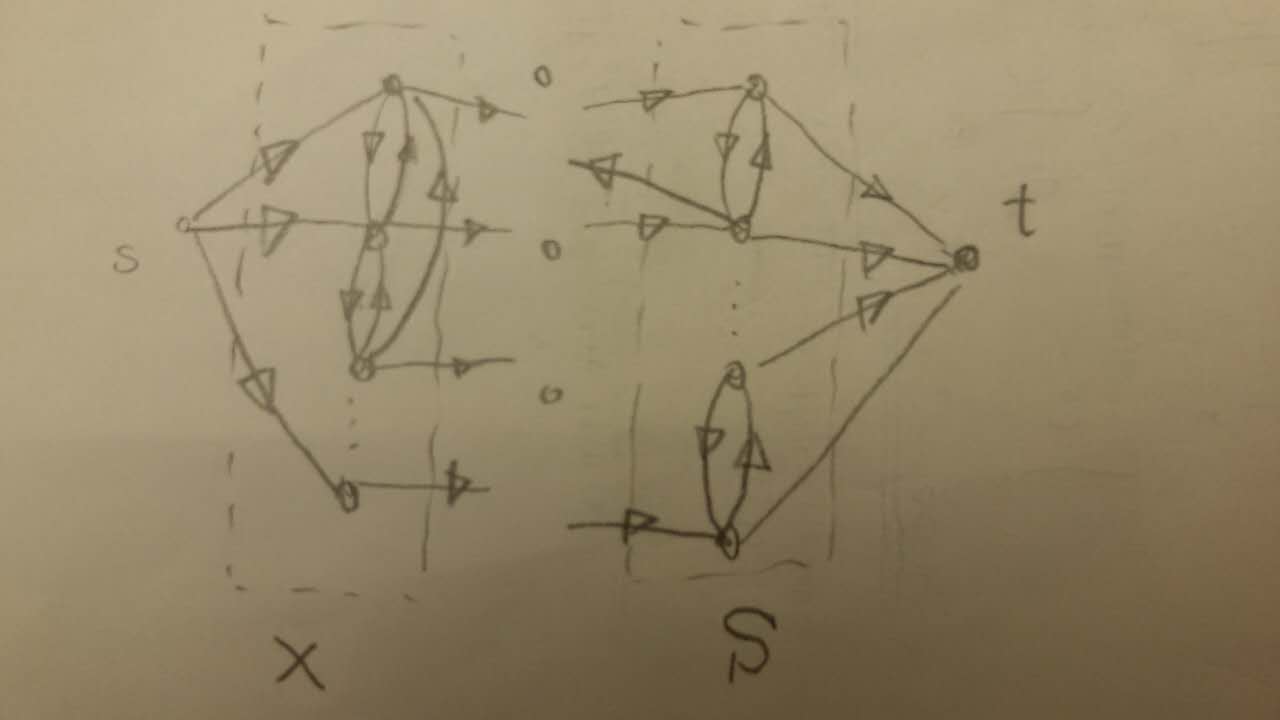 s
t
X
S